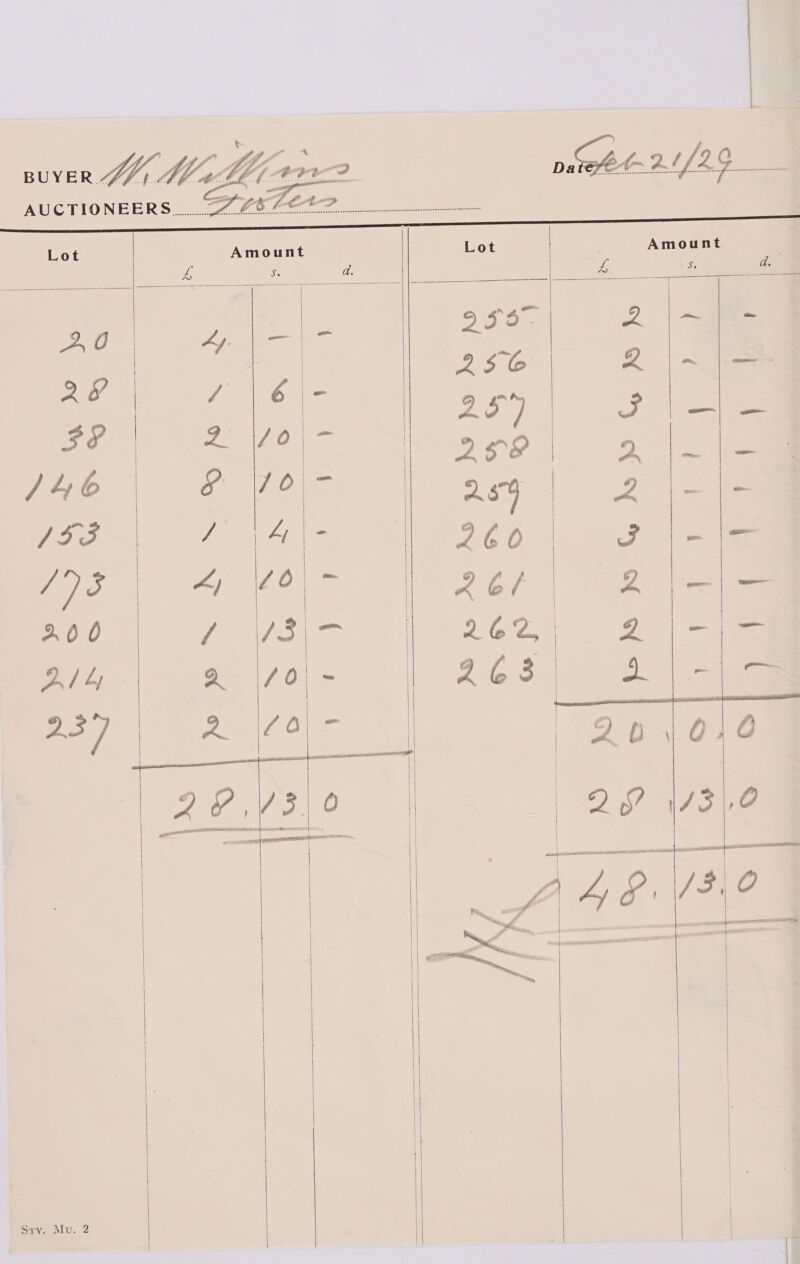 BUYER W. Williams Date Feb 21/29
AUCTIONEERS Fosters
Lot Amount Lot Amount
£ s. d. £ s. d.
20 4 - -
28 1 6 -
38 2 10 -
146 8 10 -
153 1 4 -
173 4 10 -
200 1 13 -
214 2 10 -
237 2 10 -
28 . 13 . 0
255 2 - -
256 2 - -
257 3 - -
258 2 - -
259 2 - -
260 3 - -
261 2 - -
262 2 - -
263 2 - -
20 , 0 , 0
28 , 13 , 0
£ 48 . 13 . 0
Stv. Mu. 2